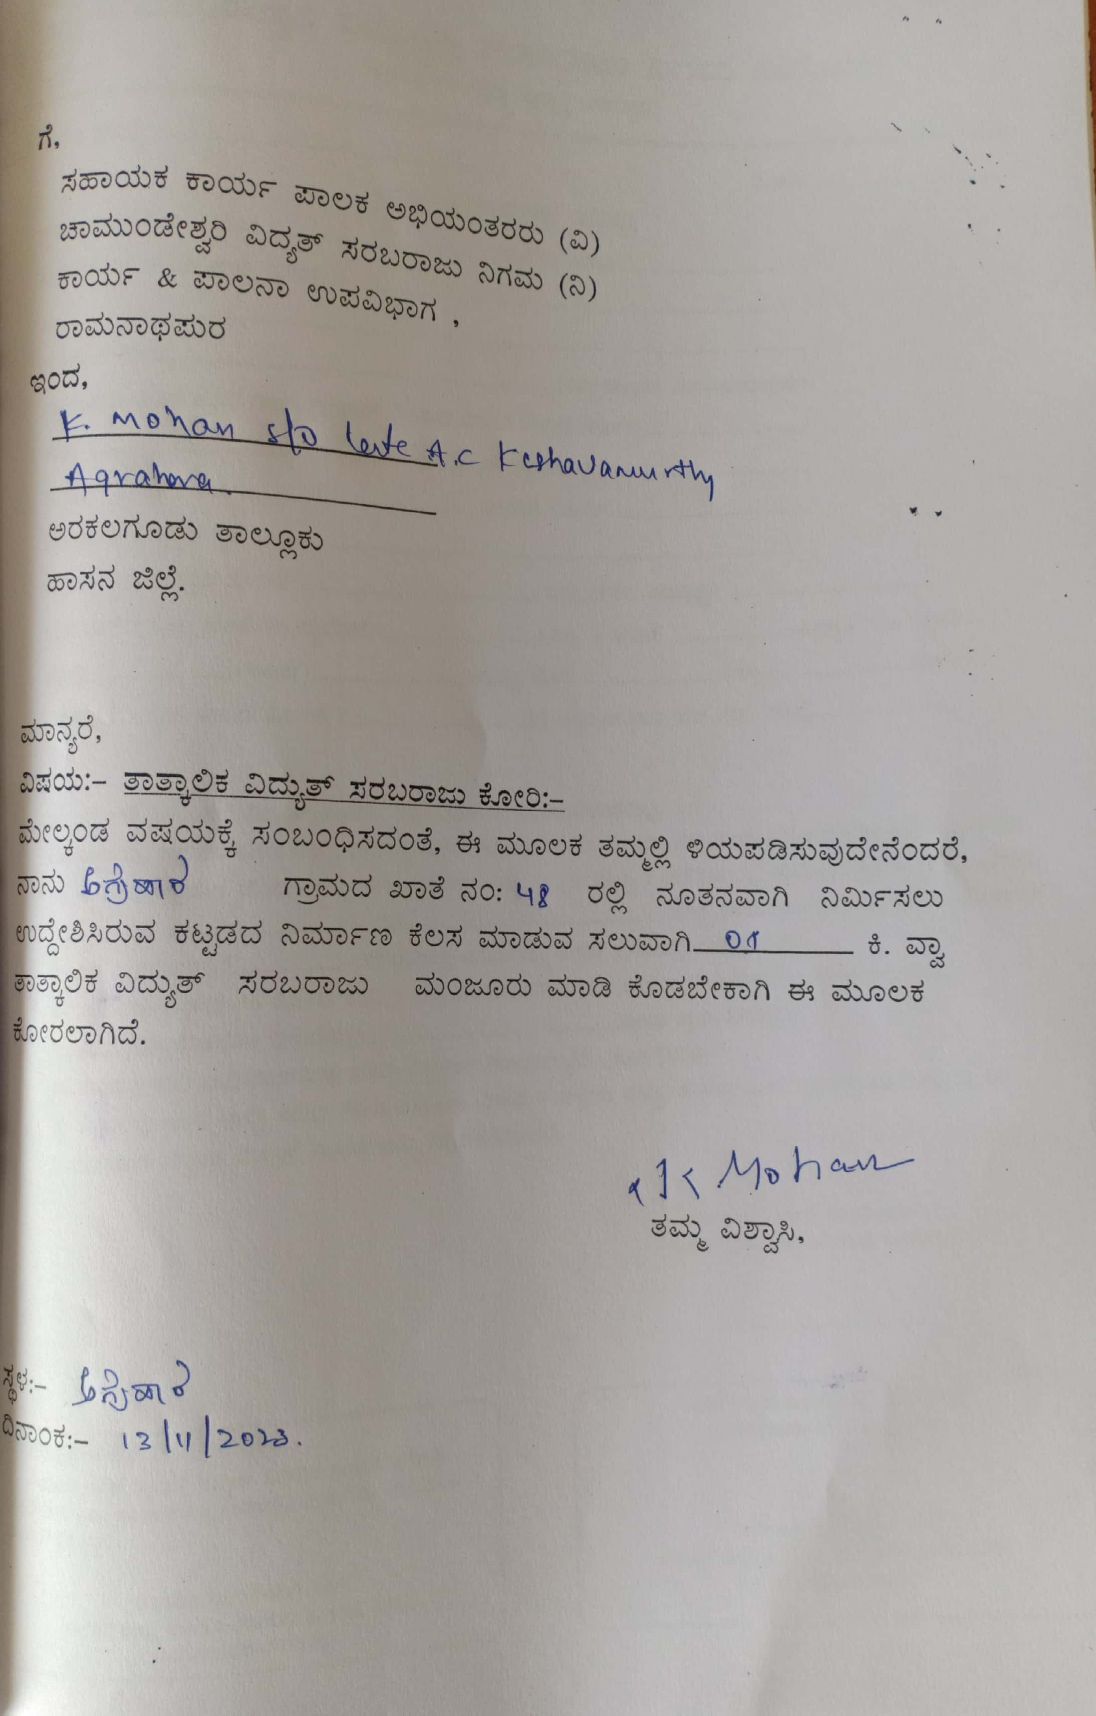 ಗೆ,
ಸಹಾಯಕ ಕಾರ್ಯ ಪಾಲಕ ಅಭಿಯಂತರರು (ವಿ)
ಚಾಮುಂಡೇಶ್ವರಿ ವಿದ್ಯತ್ ಸರಬರಾಜು ನಿಗಮ (ನಿ)
ಕಾರ್ಯ & ಪಾಲನಾ ಉಪವಿಭಾಗ ,
ರಾಮನಾಥಪುರ
ಇಂದ,
K. Mohan s/o late A.C Keshavamurthy
Agrahara.
ಅರಕಲಗೂಡು ತಾಲ್ಲೂಕು
ಹಾಸನ ಜಿಲ್ಲೆ.
ಮಾನ್ಯರೆ,
ವಿಷಯ:- ತಾತ್ಕಾಲಿಕ ವಿದ್ಯುತ್ ಸರಬರಾಜು ಕೋರಿ:-
ಮೇಲ್ಕಂಡ ವಷಯಕ್ಕೆ ಸಂಬಂಧಿಸದಂತೆ, ಈ ಮೂಲಕ ತಮ್ಮಲ್ಲಿ ಳಿಯಪಡಿಸುವುದೇನೆಂದರೆ,
ನಾನು ಅಗ್ರಹಾರ ಗ್ರಾಮದ ಖಾತೆ ನಂ: 48 ರಲ್ಲಿ ನೂತನವಾಗಿ ನಿರ್ಮಿಸಲು
ಉದ್ದೇಶಿಸಿರುವ ಕಟ್ಟಡದ ನಿರ್ಮಾಣ ಕೆಲಸ ಮಾಡುವ ಸಲುವಾಗಿ 01 ಕಿ. ವ್ವಾ
ತಾತ್ಕಾಲಿಕ ವಿದ್ಯುತ್ ಸರಬರಾಜು ಮಂಜೂರು ಮಾಡಿ ಕೊಡಬೇಕಾಗಿ ಈ ಮೂಲಕ
ಕೋರಲಾಗಿದೆ.
K Mohan
ತಮ್ಮ ವಿಶ್ವಾಸಿ,
ಸ್ಥಳ:- ಅಗ್ರಹಾರ
ದಿನಾಂಕ:- 13/11/2023.